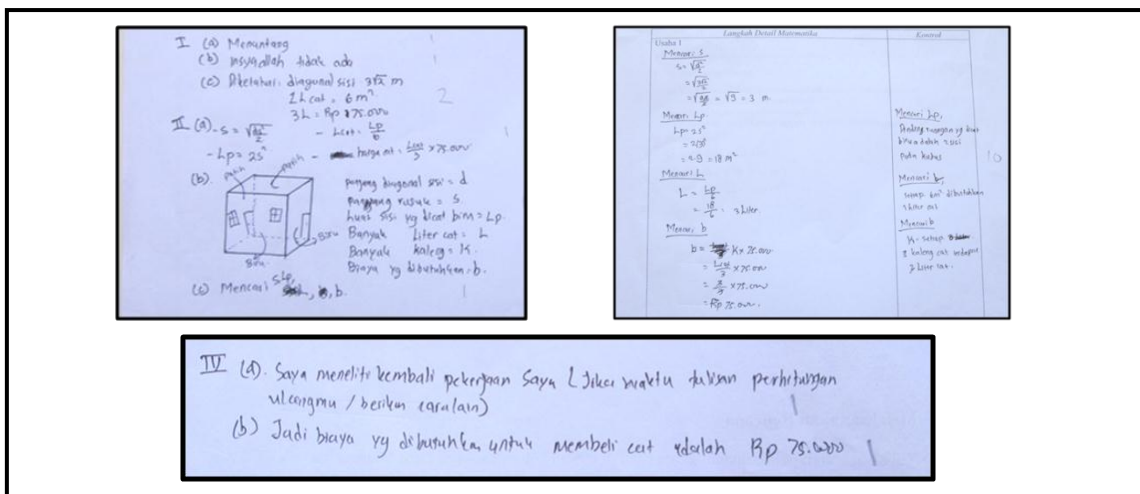 I (a) Menantang
(b) insyaallah tidak ada
(c) Diketahui: diagonal sisi 3√2 m
1 L cat = 6 m²
3 L = Rp 75.000
2
II (a) - s =
- L cat = Lp/6
- Lp = 2s²
- harga cat = Lcat/3 × 75.000
(b). putih putih
Biru Biru
panjang diagonal sisi = d
panjang rusuk = s.
Luas sisi yg dicat biru = Lp.
Banyak Liter cat = L
Banyak kaleng = K.
Biaya yg dibutuhkan = b.
(c) Mencari s, Lp, b.
Langkah Detail Matematika Kontrol
Usaha 1
Mencari s
= √9 = 3 m
Mencari Lp
Lp = 2s²
= 2.9 = 18 m²
Mencari L
L = Lp/6
= 18/6 = 3 liter
Mencari b
b = K × 75.000
= Lcat/3 × 75.000
= 3/3 × 75.000
= Rp 75.000.
Mencari Lp,
biru adalah 2 sisi
pada kubus
Mencari L,
setiap 6m² dibutuhkan
1 liter cat
Mencari b
K = setiap
kaleng cat terdapat
3 liter cat.
10
IV (a). Saya meneliti kembali pekerjaan Saya (Jika waktu tuliskan perhitungan
ulangmu / berikan cara lain)
(b) Jadi biaya yg dibutuhkan untuk membeli cat adalah Rp 75.000